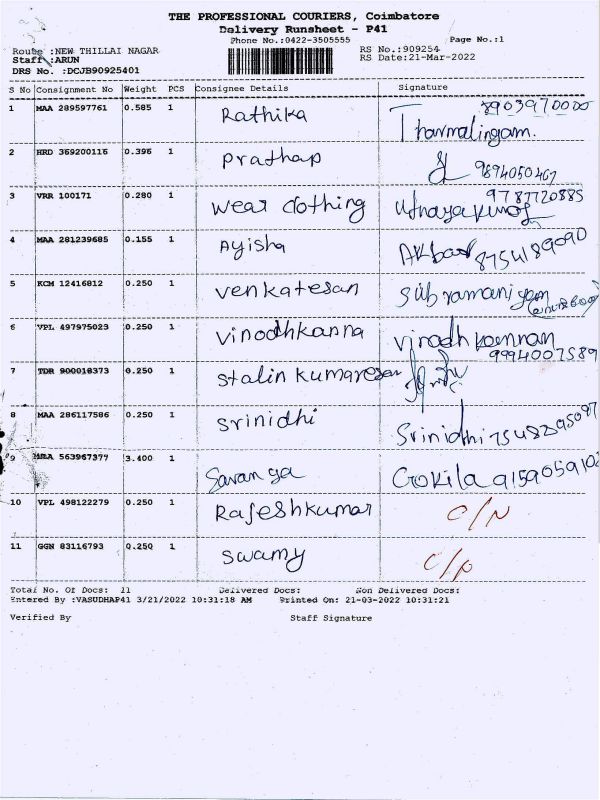 THE PROFESSIONAL COURIERS, Coimbatore
Delivery Runsheet - P41
Phone No.:0422-3505555 Page No.:1
Route :NEW THILLAI NAGAR RS No.:909254
Staff :ARUN RS Date:21-Mar-2022
DRS No. :DCJB90925401
S No Consignment No Weight PCS Consignee Details Signature
1 MAA 289597761 0.585 1 Rathika 8903970000
Tharmalingam.
2 HRD 369200116 0.396 1 Prathap 9894050467
3 VRR 100171 0.280 1 wear clothing 9787720885
uthayakumar
4 MAA 281239685 0.155 1 Ayisha Akbar 8754189090
5 KCM 12416812 0.250 1 venkatesan Subramaniyam
6 VPL 497975023 0.250 1 vinodhkanna vinodh kannan
9994007589
7 TDR 900018373 0.250 1 stalin kumaresan
8 MAA 286117586 0.250 1 srinidhi Srinidhi 7548295097
9 MAA 563967377 3.400 1 Saranya Gokila 9159059102
10 VPL 498122279 0.250 1 Rajeshkumar C/N
11 GGN 83116793 0.250 1 swamy C/P
Total No. Of Docs: 11 Delivered Docs: Non Delivered Docs:
Entered By :VASUDHAP41 3/21/2022 10:31:18 AM Printed On: 21-03-2022 10:31:21
Verified By Staff Signature